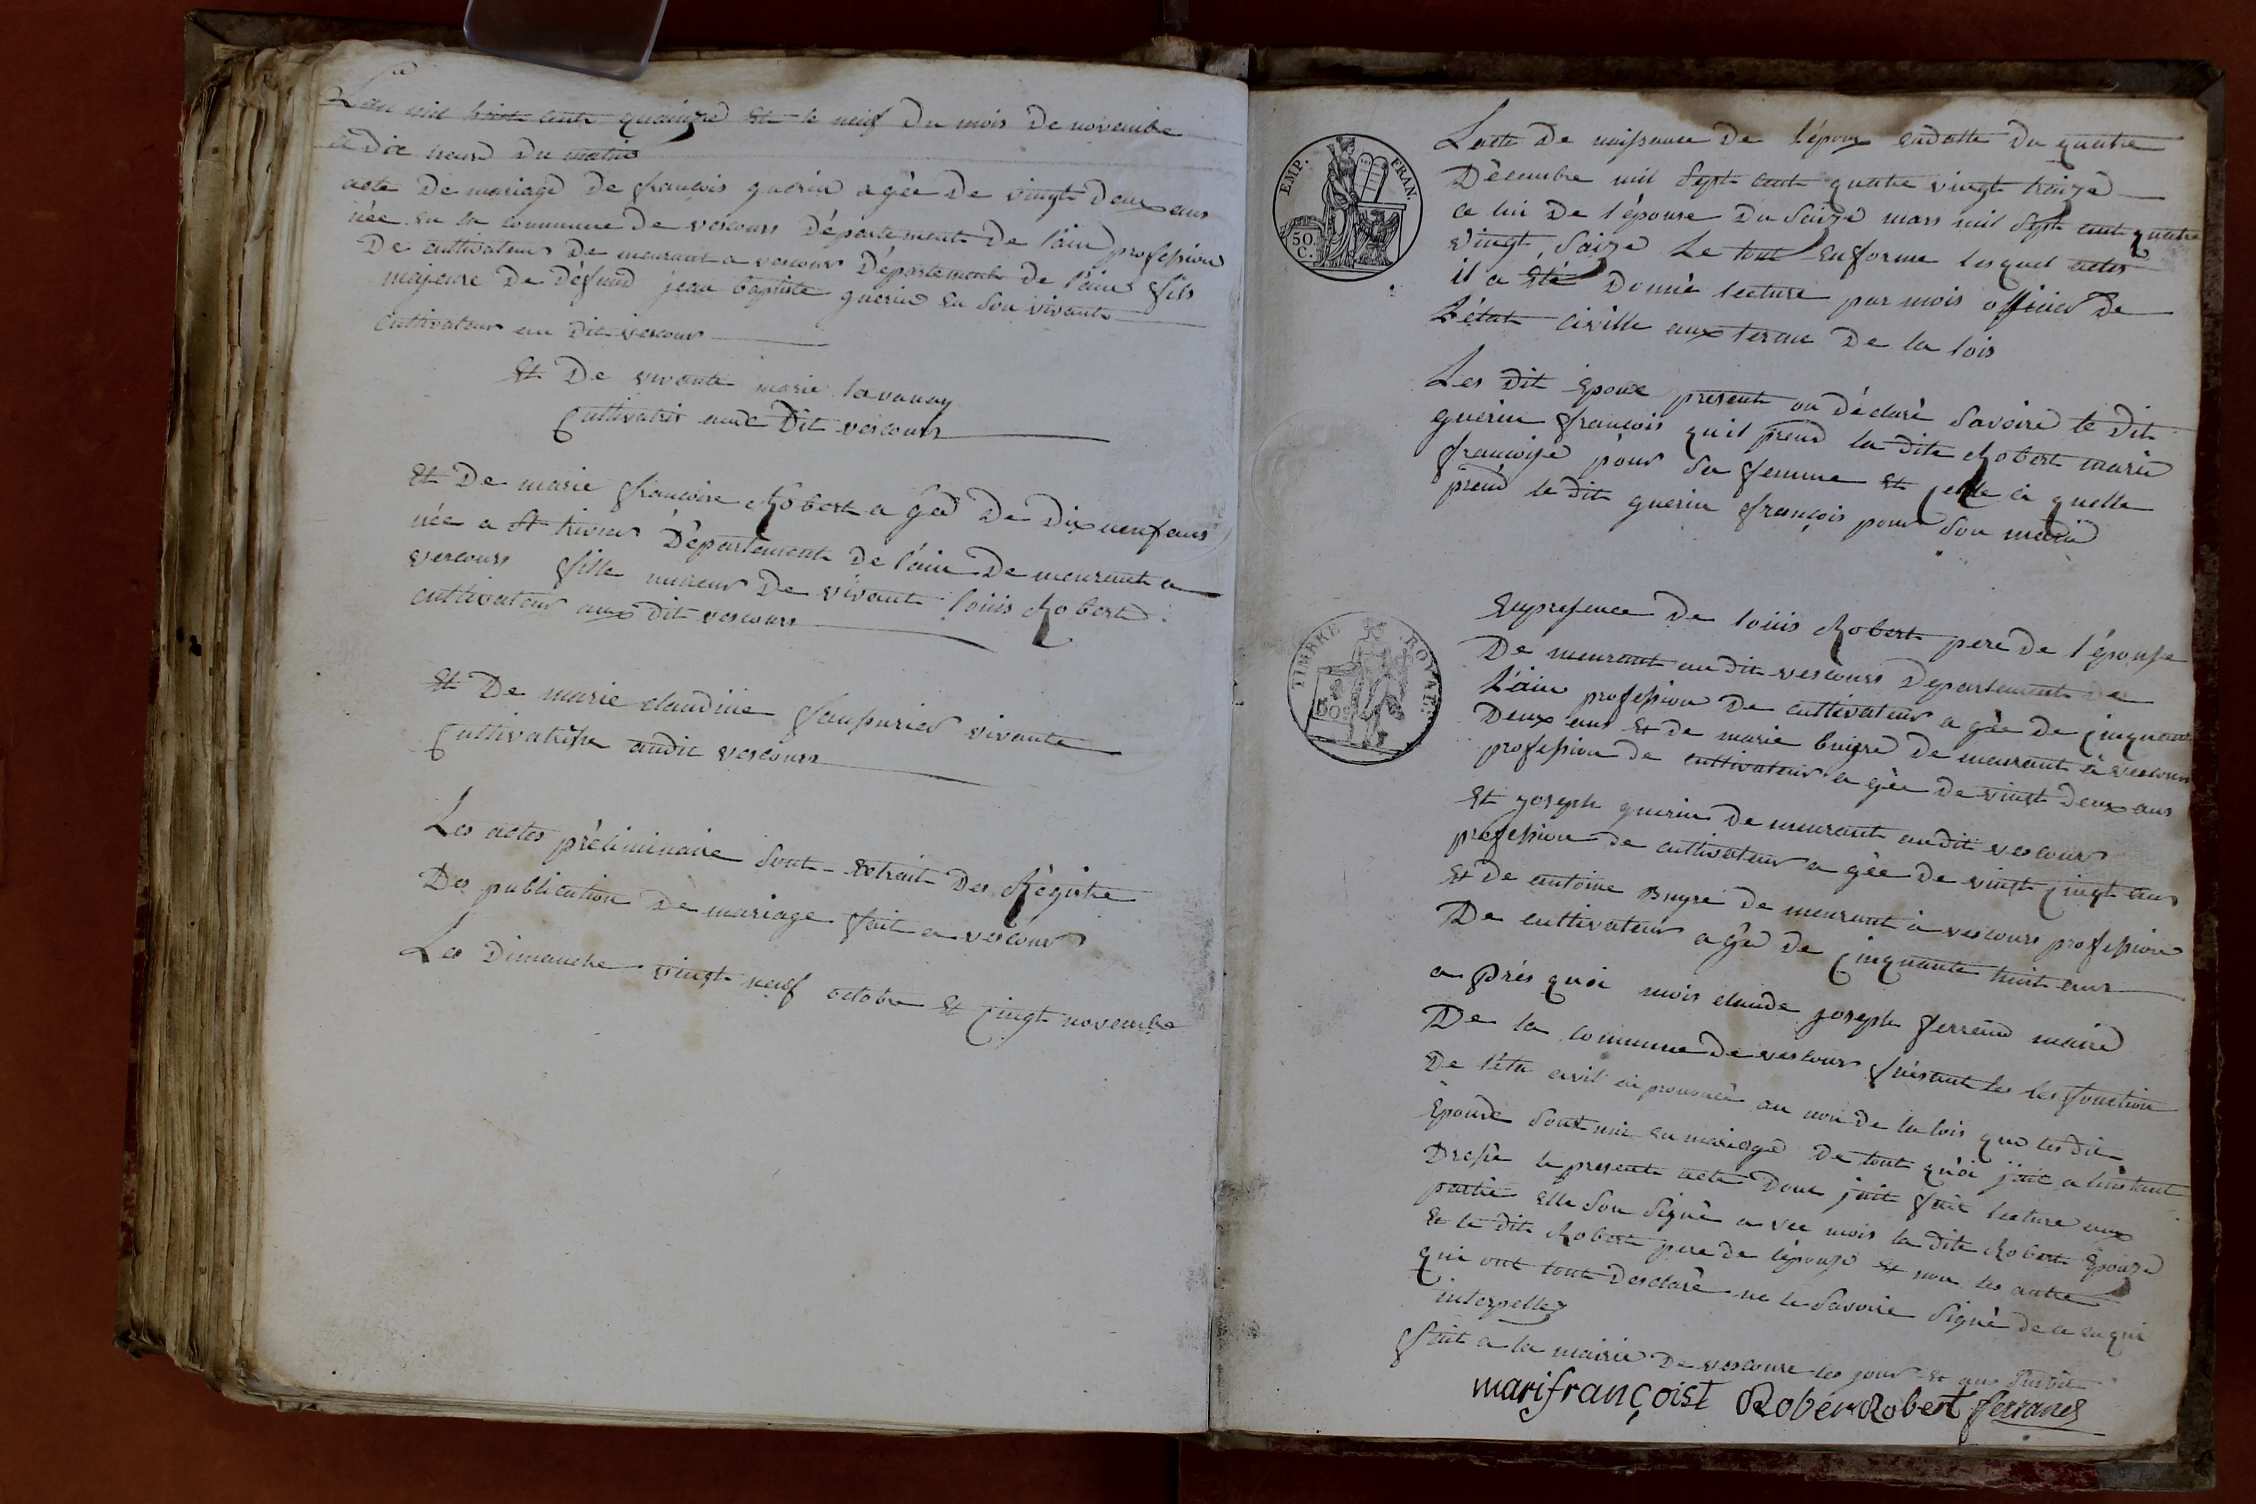 L'an mil huit cents quainze Et le neuf Du mois De novembre
a Dix heurs Du matin
acte De mariage De françois guerin agèe De vingt Deux ans
nèe en la commune De vescours Département De l'ain profession
De cultivateur De meurant a vescours Département De l'ain fils
majeure De Défund jean baptiste guerin En Son vivant
Cultivateur au Dit vescour
Et De vivante marie lavanay
Cultivatris aux Dit vescours
Et De marie françoise Robert a Gèe De Dix neuf ans
nèe a St trivier Département De l'ain De meurant a
vescours fille mineur De vivant louis Robert
cultivateur aux Dit vescours
Et De marie claudine vivante
Cultivatrise audit vescours
Les actes prèliminaire Sont Extrait Des Règistre
Des publication De mariage fait a vescour
Les Dimanche vingt neuf octobre Et Cinqt novembre
EMP. FRAN.
50 C.
L'acte De naissance De l'époux Endatte Du quatre
Décembre mil Sept cent quatre vingt traize
ce lui De l'épouse Du Saize mars mil Sept cent quatre
vingt Saize Le tout En forme lesquel actes
il a Eté Donnè lecture par mois officier De
L'état civille aux terme De la lois
Les Dit Epoux present on Déclaré Savoire le Dit
guerin françois quil prend la Dite Robert marie
françoise pour Sa femme Et celle ci quelle
prend le Dit guerin françois pour Son marie
TIMBRE ROYAL
50
En presence De louis Robert pere De l'épouse
De meurant au Dit vescours Departement De
L'ain profession De cultivateur a gèe De cinquante
Deux ans Et de marie buigre De meurant à vescours
profession de cultivateur a gèe De vingt Deux ans
Et joseph guerin De meurant audit vescours
profession de cultivateur a gèe De vingt Cinqt ans
Et De antoine Buyre De meurant à vescours profession
De cultivateur a gèe De Cinquante huit ans
a Près quoi mois claude joseph ferrand maire
De la commune De vescours faisant les les fonction
De l'éta civil ai prononcè au non De la lois que les Dit
Epouse Sont uni En mariage De tout quoi jait a linstant
Dresse le presente acte Dont jait fait lecture aux
partie Elle Son Signè a vec mois la Dite Robert Epouze
Et le Dit Robert pere De l'épouse Et non les autre
qui ont tout Desclarè ne le Savoire Signè de ce enqui
interpellez
fait a la mairie De vescoure les jour Et ans Susdit
marifrançoist Rober Robert ferrand